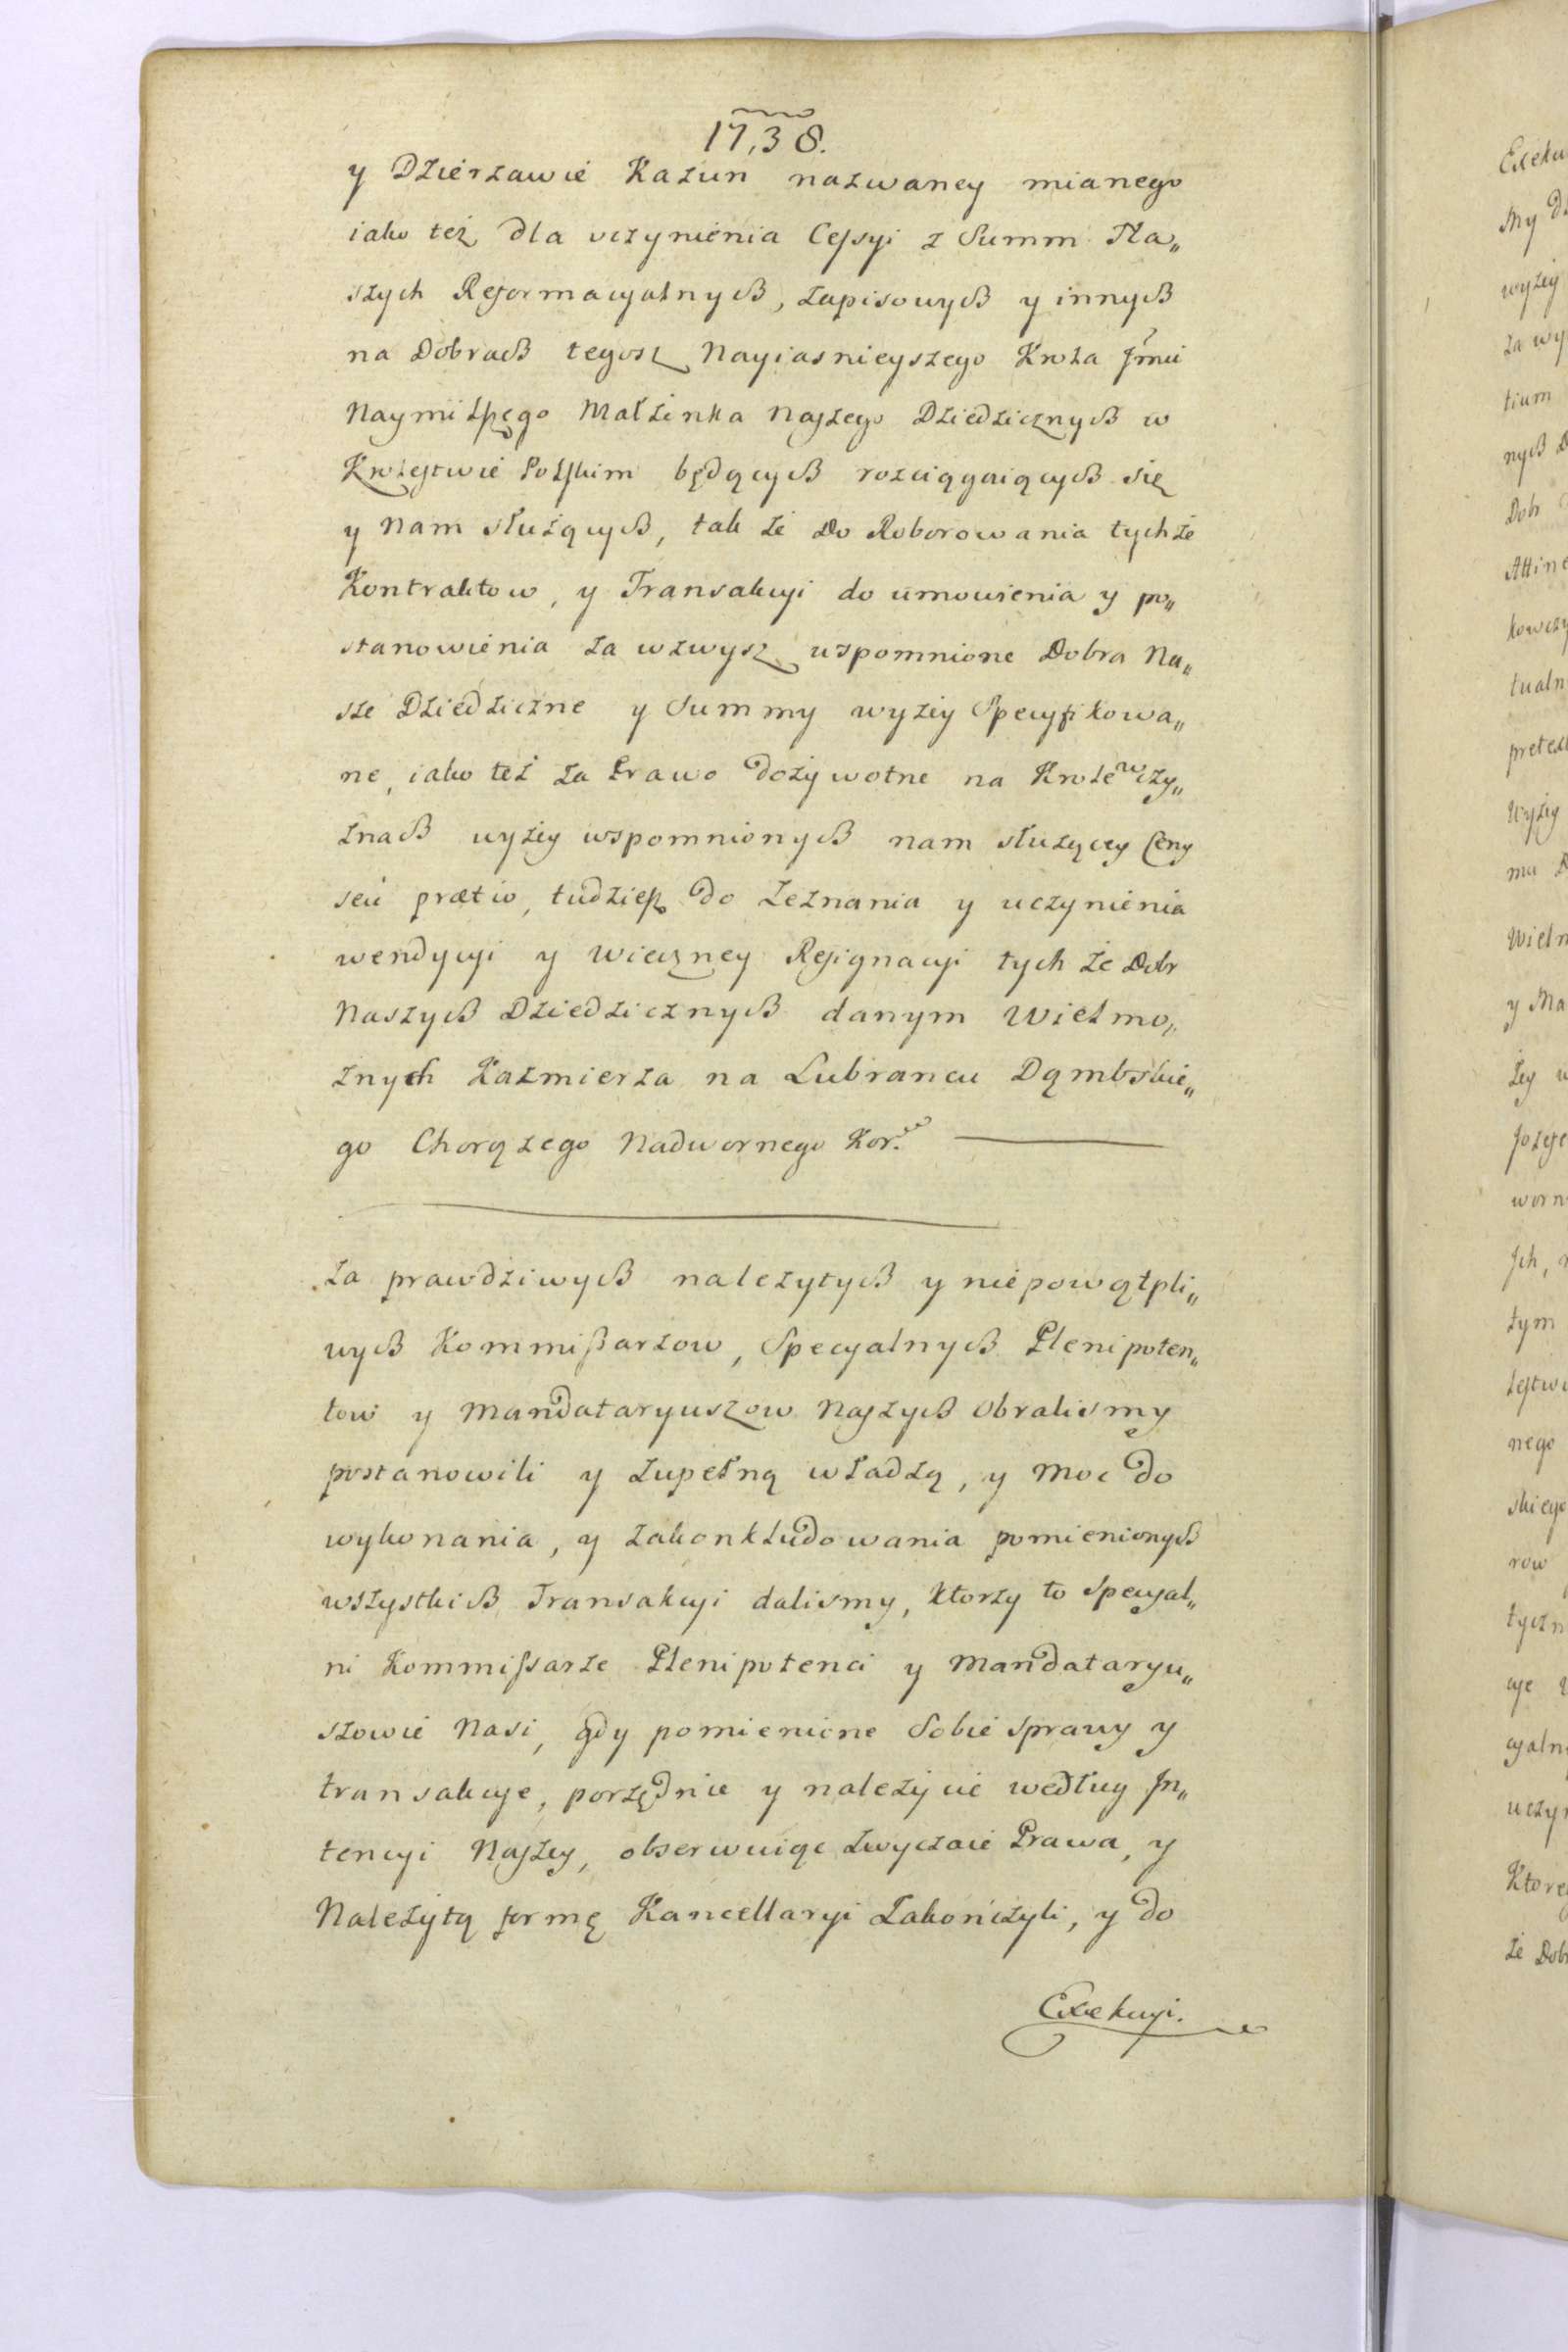 1738.
y Dzierzawie Kazun nazwaney mianego
iako też dla uczynienia Cessyi z Summ Na„
szych Reformacyalnych, zapisowych y innych
na Dobrach tegosz Nayiasnieyszego Krola Jmci
Naymilszego Małżonka Naszego Dziedzicznych w
Krolestwie Polskim będących rozciągaiących się
y Nam służących, tak że do Roborowania tychże
Kontraktow, y Transakcyi do umowienia y po„
stanowienia za wzwysz wspomnione Dobra Na„
sze Dziedziczne y Summy wyżey Specyfikowa„
ne, iako też za Prawo dożywotne na Krolewczy„
znach wyżey wspomnionych nam służącey Ceny
seu prætio, tudziesz do zeznania y uczynienia
wendycyi y wieczney Resignacyi tych że Dobr
Naszych Dziedzicznych danym Wielmo„
żnych Kazmierza na Lubrancu Dąmbskie„
go Chorążego Nadwornego Kor.
za prawdziwych należytych y niepowątpli„
wych Kommissarzow, Specyalnych Plenipoten„
tow y Mandataryuszow Naszych obralismy
postanowili y zupełną władzą, y Moc do
wykonania, y zakonkludowania pomienionych
wszystkich Transakcyi dalismy, ktorzy to Specyal„
ni Kommissarze Plenipotenci y Mandataryu„
szowie Nasi, gdy pomienione Sobie sprawy y
transakcye, porzędnie y należycie według In„
tencyi Naszey, obserwuiąc zwyczaie Prawa, y
Należytą formę Kancellaryi Zakończyli, y do
Exekucyi.